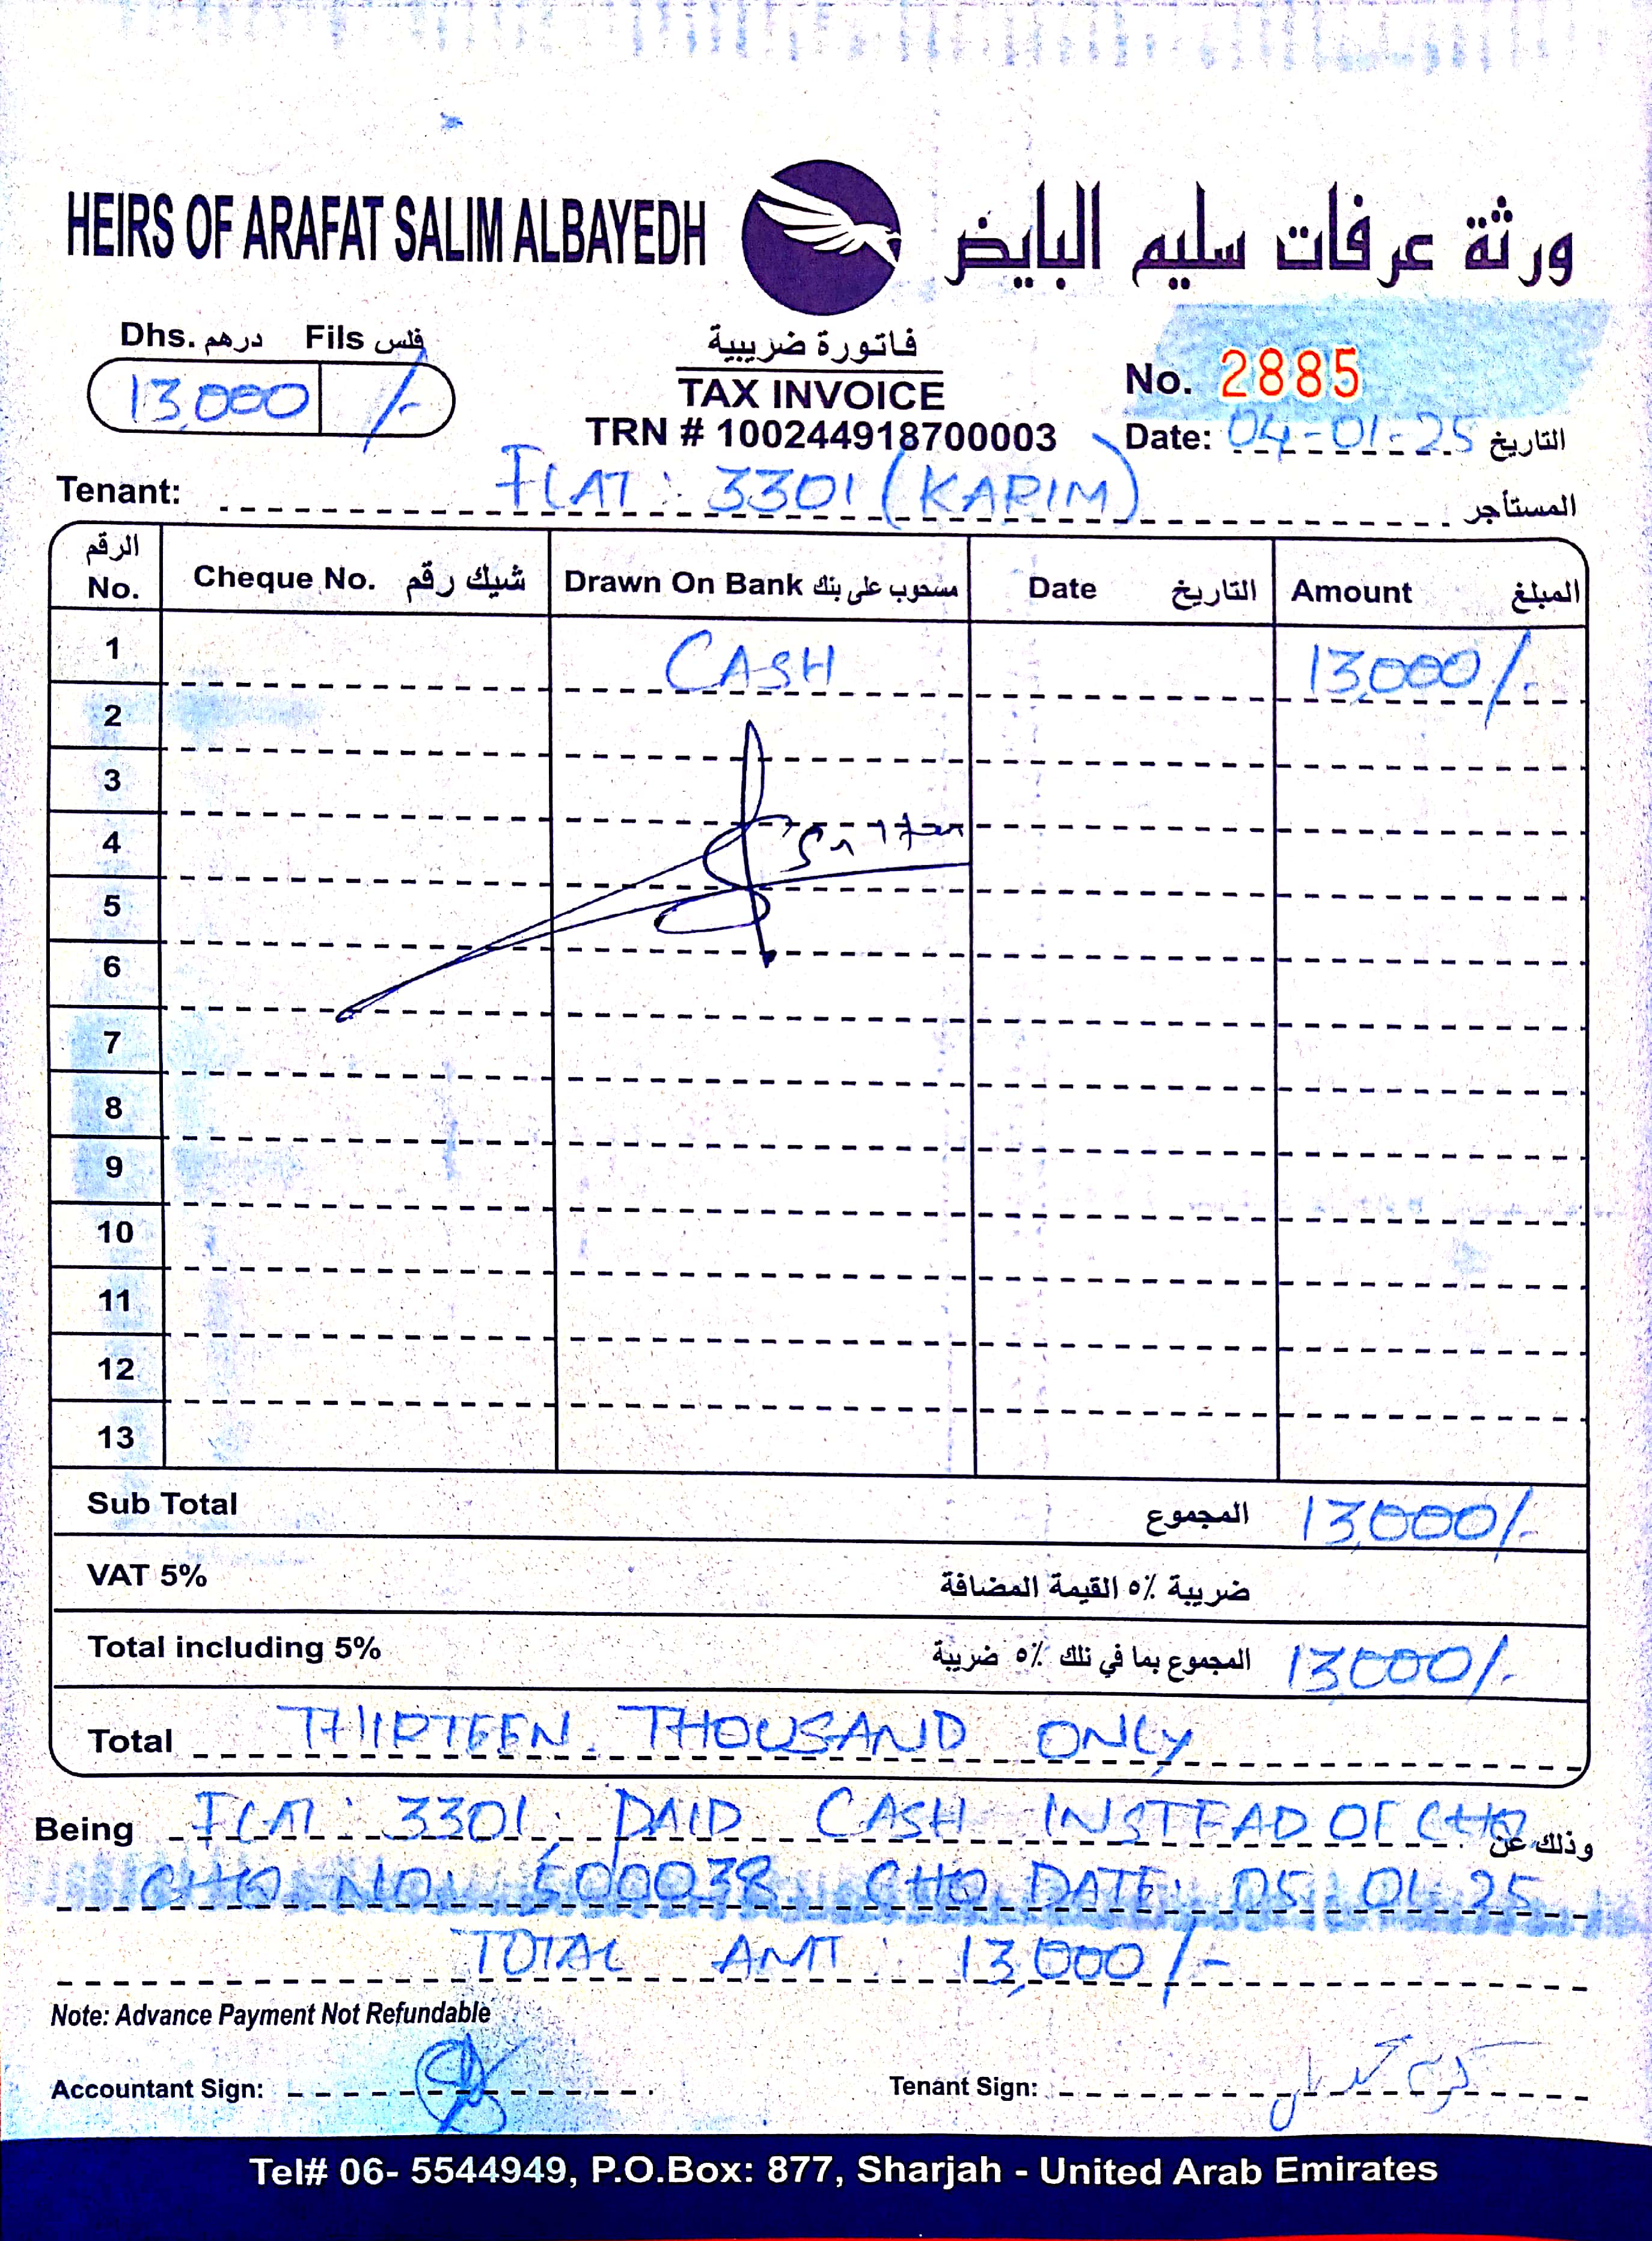 HEIRS OF ARAFAT SALIM ALBAYEDH ورثة عرفات سليم البايض
Dhs. درهم Fils فلس
13,000 /-
فاتورة ضريبية
TAX INVOICE
TRN # 100244918700003
No. 2885
Date: 04-01-25 التاريخ
Tenant: FLAT: 3301 (KARIM) المستأجر
الرقم No. Cheque No. شيك رقم Drawn On Bank مسحوب على بنك Date التاريخ Amount المبلغ
1 CASH 13,000/-
2
3
4
5
6
7
8
9
10
11
12
13
Sub Total المجموع 13,000/-
VAT 5% ضريبة ٥٪ القيمة المضافة
Total including 5% المجموع بما في ذلك ٥٪ ضريبة 13,000/-
Total THIRTEEN THOUSAND ONLY
Being FLAT: 3301, PAID CASH INSTEAD OF CHQ وذلك عن
CHQ NO: 500038 CHQ DATE: 05-01-25
TOTAL AMT: 13,000/-
Note: Advance Payment Not Refundable
Accountant Sign:
Tenant Sign: كريم محمد
Tel# 06- 5544949, P.O.Box: 877, Sharjah - United Arab Emirates